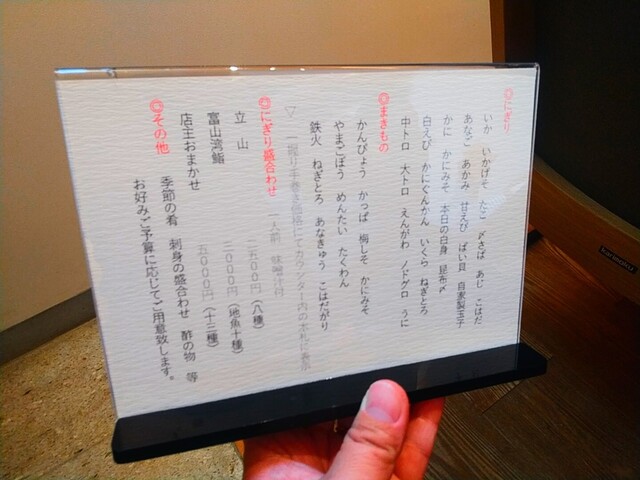 ◎にぎり
いか いかげそ たこ 〆さば あじ こはだ
あなご あかみ 甘えび ばい貝 自家製玉子
かに かにみそ 本日の白身 昆布〆
白えび かにぐんかん いくら ねぎとろ
中トロ 大トロ えんがわ ノドグロ うに
◎まきもの
かんぴょう かっぱ 梅しそ かにみそ
やまごぼう めんたい たくわん
鉄火 ねぎとろ あなきゅう こはだがり
▽ 一握り手巻き価格にてカウンター内の木札に表示
◎にぎり盛合わせ 一人前 味噌汁付
立山 二五〇〇円 (八種)
富山湾鮨 三〇〇〇円 (地魚十種)
店主おまかせ 五〇〇〇円 (十三種)
◎その他 季節の肴 刺身の盛合わせ 酢の物 等
お好みご予算に応じてご用意致します。